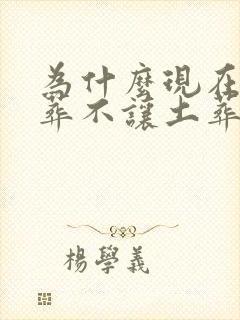 為什麼現在
葬不讓土葬
楊學義